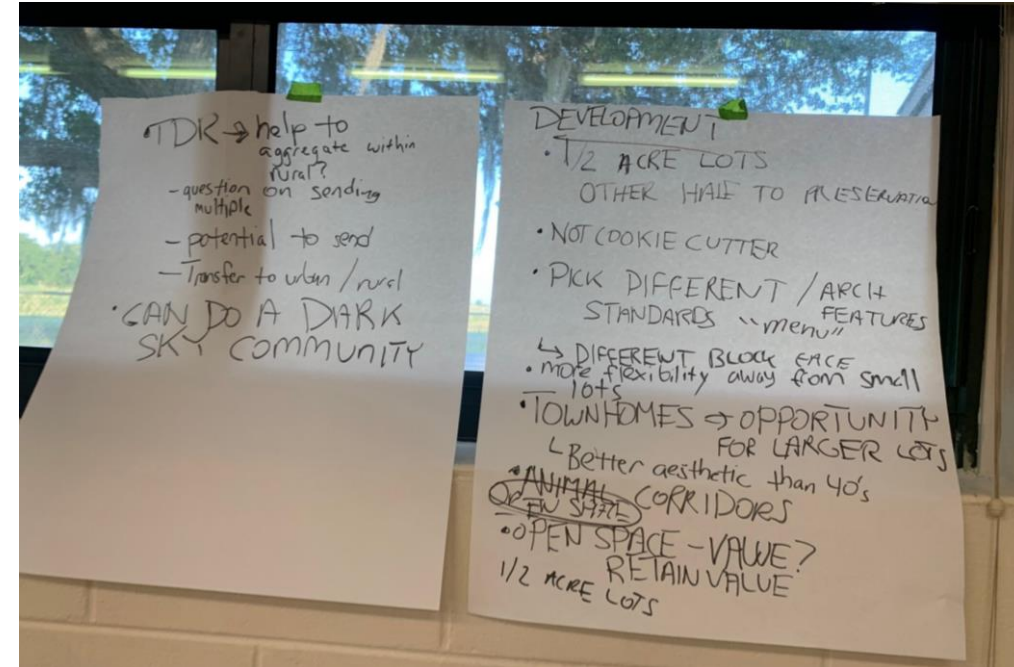 TDR → help to
aggregate within
rural?
- question on sending
multiple
- potential to send
- Transfer to urban / rural
• CAN DO A DARK
SKY COMMUNITY
DEVELOPMENT
• 1/2 ACRE LOTS
OTHER HALF TO PRESERVATIO
• NOT COOKIE CUTTER
• PICK DIFFERENT / ARCH
FEATURES
STANDARDS "menu"
↳ DIFFERENT BLOCK FACE
• more flexibility away from small
lots
• TOWNHOMES → OPPORTUNITY
FOR LARGER LOTS
↳ Better aesthetic than 40's
• ANIMAL CORRIDORS
OPEN SPACE
• OPEN SPACE - VALUE?
RETAIN VALUE
1/2 ACRE LOTS